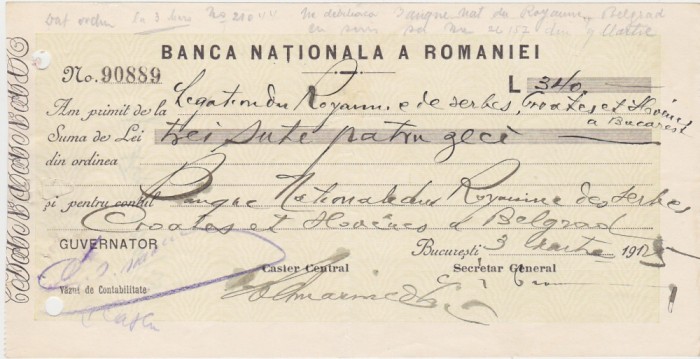 Dat ordin la 3 No 21044 în debitarea Banque Nat du Royaume, Belgrad
BANCA NAȚIONALA A ROMANIEI
No. 90889
L 340.
Am primit de la Legation du Royaume de Serbes, Croates et Slovènes
a Bucarest
Suma de Lei trei sute patru zeci
din ordinea
și pentru contul Banque Nationale du Royaume des Serbes
Croates et Slovènes a Belgrad
GUVERNATOR
București 3 Martie 192
Casier Central
Secretar General
Văzut de Contabilitate